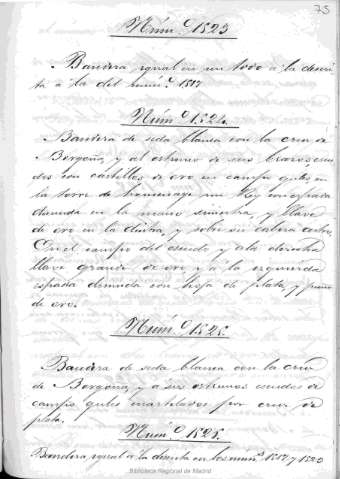 75
Núm.º 1523
Bandera igual en un todo á la descri
ta á la del núm.º 1517
Núm.º 1524.
Bandera de seda blanca con la cruz de
Borgoña, y al estremo de sus brazos escu
dos con castillos de oro en campo gules en
la torre de homenage un Rey con espada
desnuda en la mano siniestra, y llave
de oro en la diestra, y sobre su cabeza
En el campo del escudo y á la derecha
llave grande de oro y á la izquierda
espada desnuda con hoja de plata, y puño
de oro.
Núm.º 1525.
Bandera de seda blanca con la cruz
de Borgoña, y a sus estremos escudos de
campo gules cuartelados por cruz de
plata.
Núm.º
Bandera, igual á la descrita en los núm.s 1517 y 1523
Biblioteca Regional de Madrid